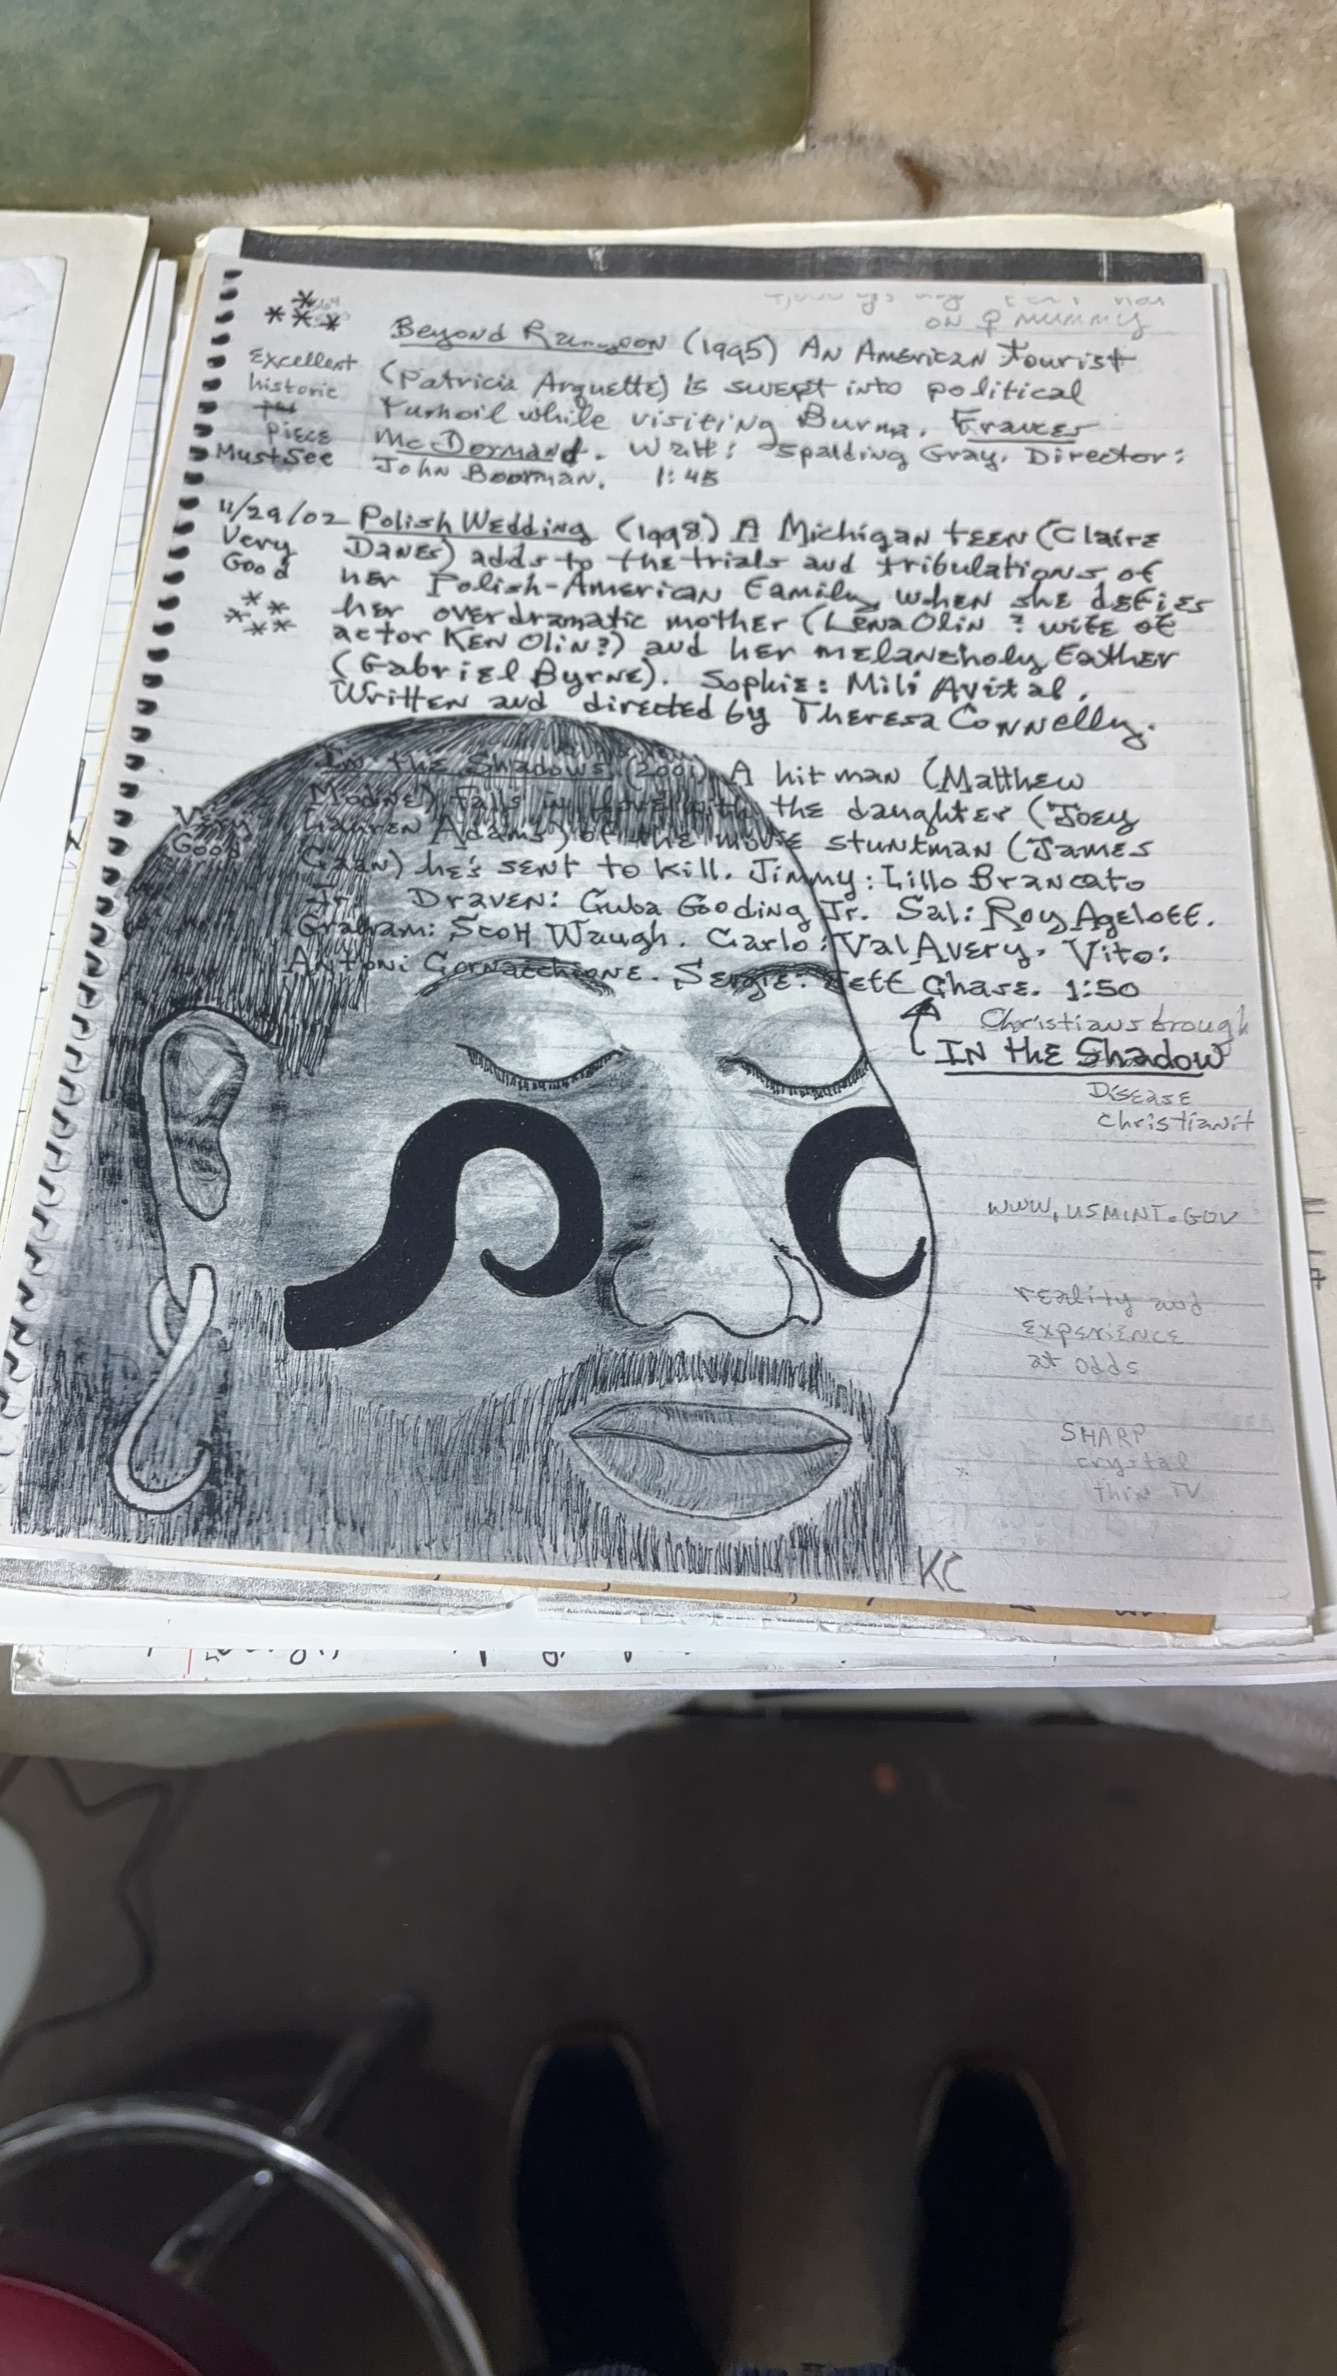 ON ♀ MUMMY
****
Excellent
historic
PIECE
Must See
Beyond Rangoon (1995) AN AMERICAN tourist
(Patricia Arquette) is swept into political
turmoil while visiting Burma. Frances
McDormand. Watt: Spalding Gray. Director:
John Boorman. 1:45
11/29/02
Very
Good
*****
Polish Wedding (1998) A Michigan teen (Claire
Danes) adds to the trials and tribulations of
her Polish-American family when she defies
her overdramatic mother (Lena Olin ? wife of
actor Ken Olin?) and her melancholy father
(Gabriel Byrne). Sophie: Mili Avital.
Written and directed by Theresa Connelly.
Very
Good
In the Shadows (2001) A hit man (Matthew
Modine) falls in love with the daughter (Joey
Lauren Adams) of the movie stuntman (James
Caan) he's sent to kill. Jimmy: Lillo Brancato
Jr. Draven: Cuba Gooding Jr. Sal: Roy Ageloff.
Graham: Scott Waugh. Carlo: Val Avery. Vito:
Antoni Cornacchione. Sergie: Jeff Chase. 1:50
Christians brough
IN the Shadow
Disease
Christianit
WWW.USMINT.GOV
reality and
experience
at odds
SHARP
crystal
thin TV
KC